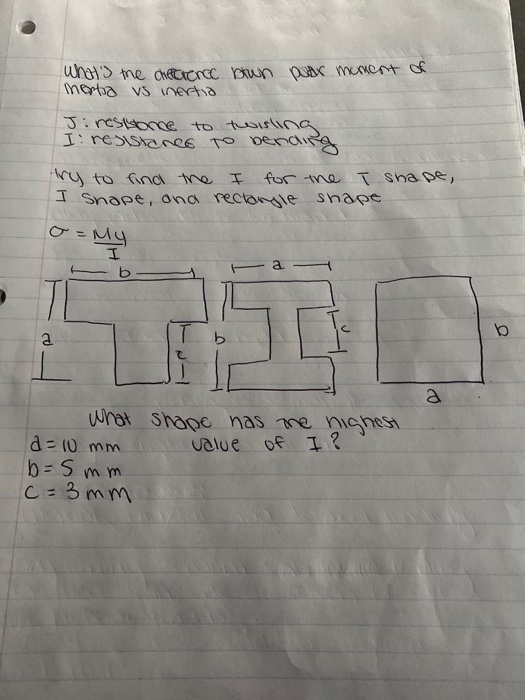 What's the difference btwn polar moment of
inertia vs inertia
J: resistance to twisting
I: resistances to bending
try to find the I for the T shape,
I shape, and rectangle shape
σ = My
I
b
a
c
a
b
c
b
a
What shape has the highest
value of I?
a = 10 mm
b = 5 mm
c = 3 mm